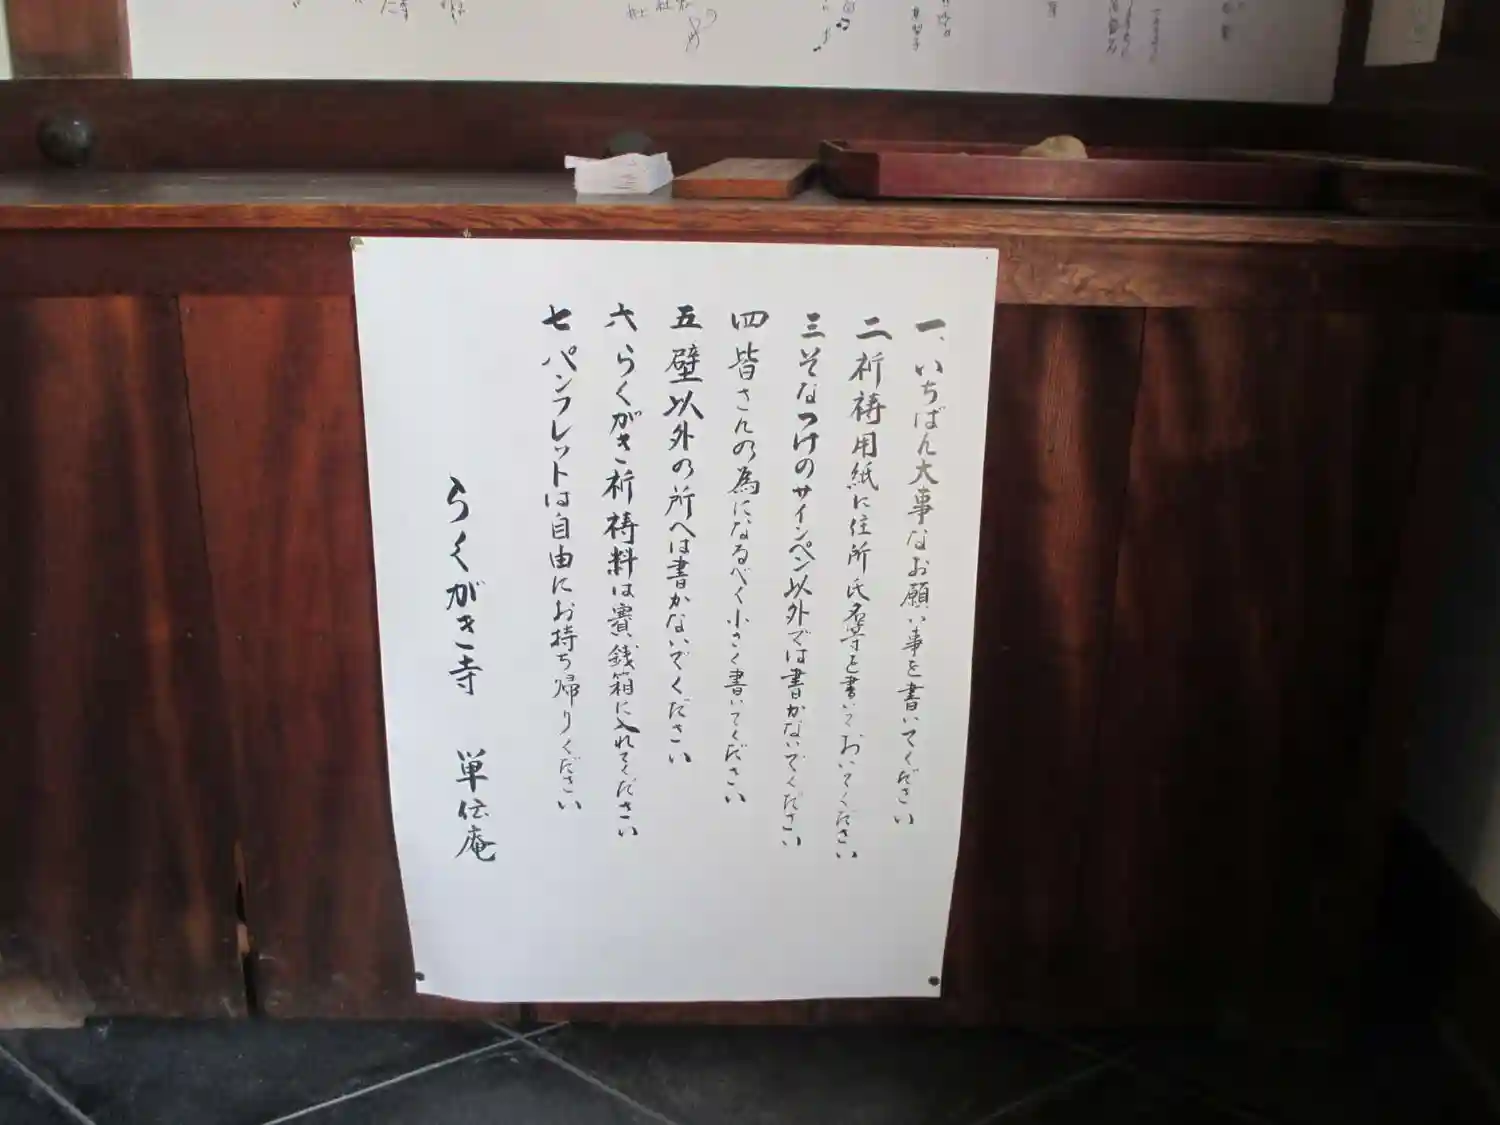 一、いちばん大事なお願い事を書いてください
二 祈祷用紙に住所氏名等を書いておいてください
三 そなつけのサインペン以外では書かないでください
四 皆さんの為になるべく小さく書いてください
五 壁以外の所へは書かないでください
六 らくがき祈祷料は賽銭箱に入れてください
七 パンフレットは自由にお持ち帰りください
らくがき寺 単伝庵